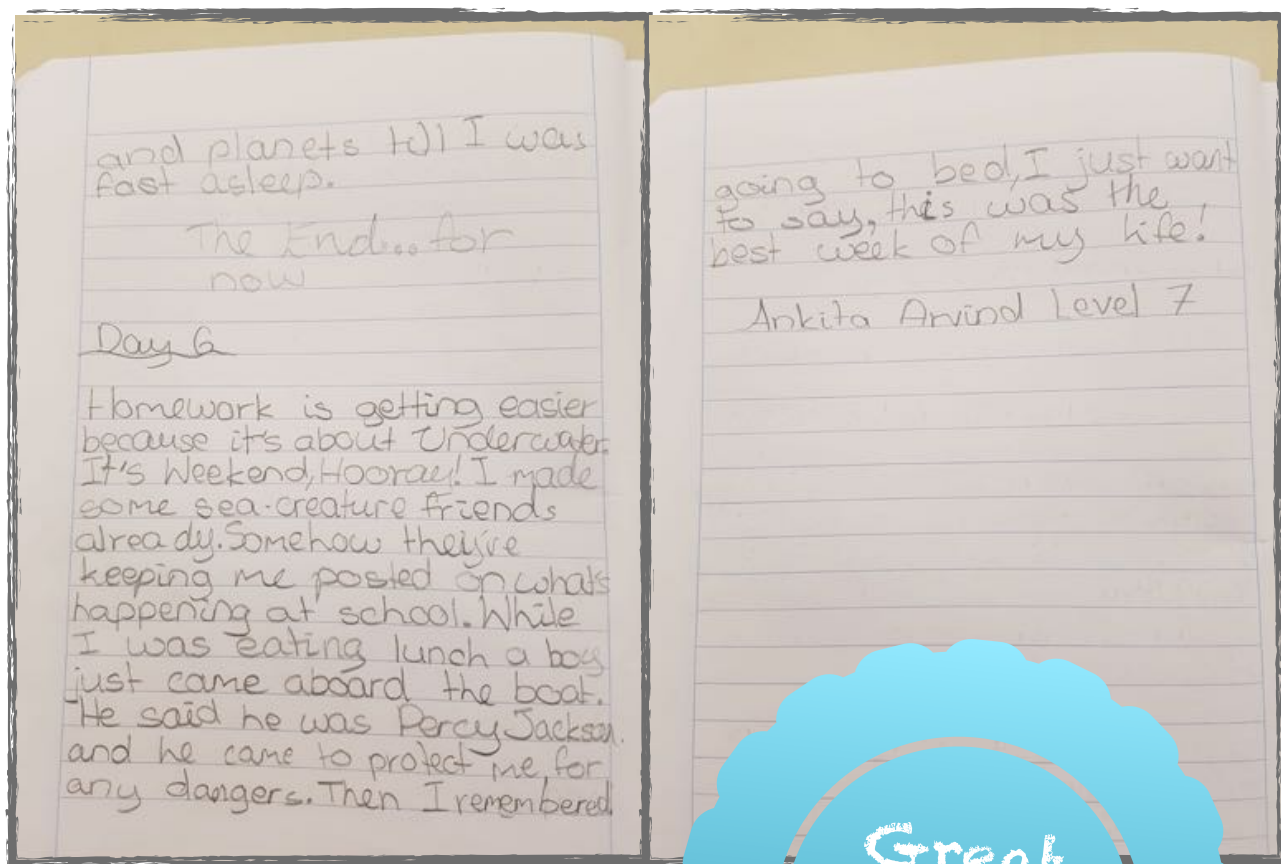 and planets till I was
fast asleep.
The End... for
now
Day 6
Homework is getting easier
because it's about Underwater.
It's Weekend, Hooray! I made
some sea-creature friends
already. Somehow they're
keeping me posted on what's
happening at school. While
I was eating lunch a boy
just came aboard the boat.
He said he was Percy Jackson.
and he came to protect me, for
any dangers. Then I remembered
going to bed, I just want
to say, this was the
best week of my life!
Ankita Arvind Level 7
Great